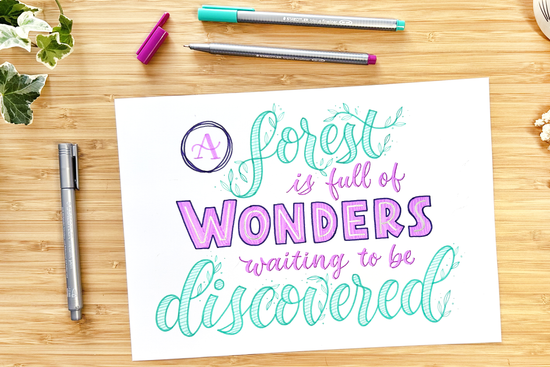 A forest
is full of
WONDERS
waiting to be
discovered
STAEDTLER
STAEDTLER